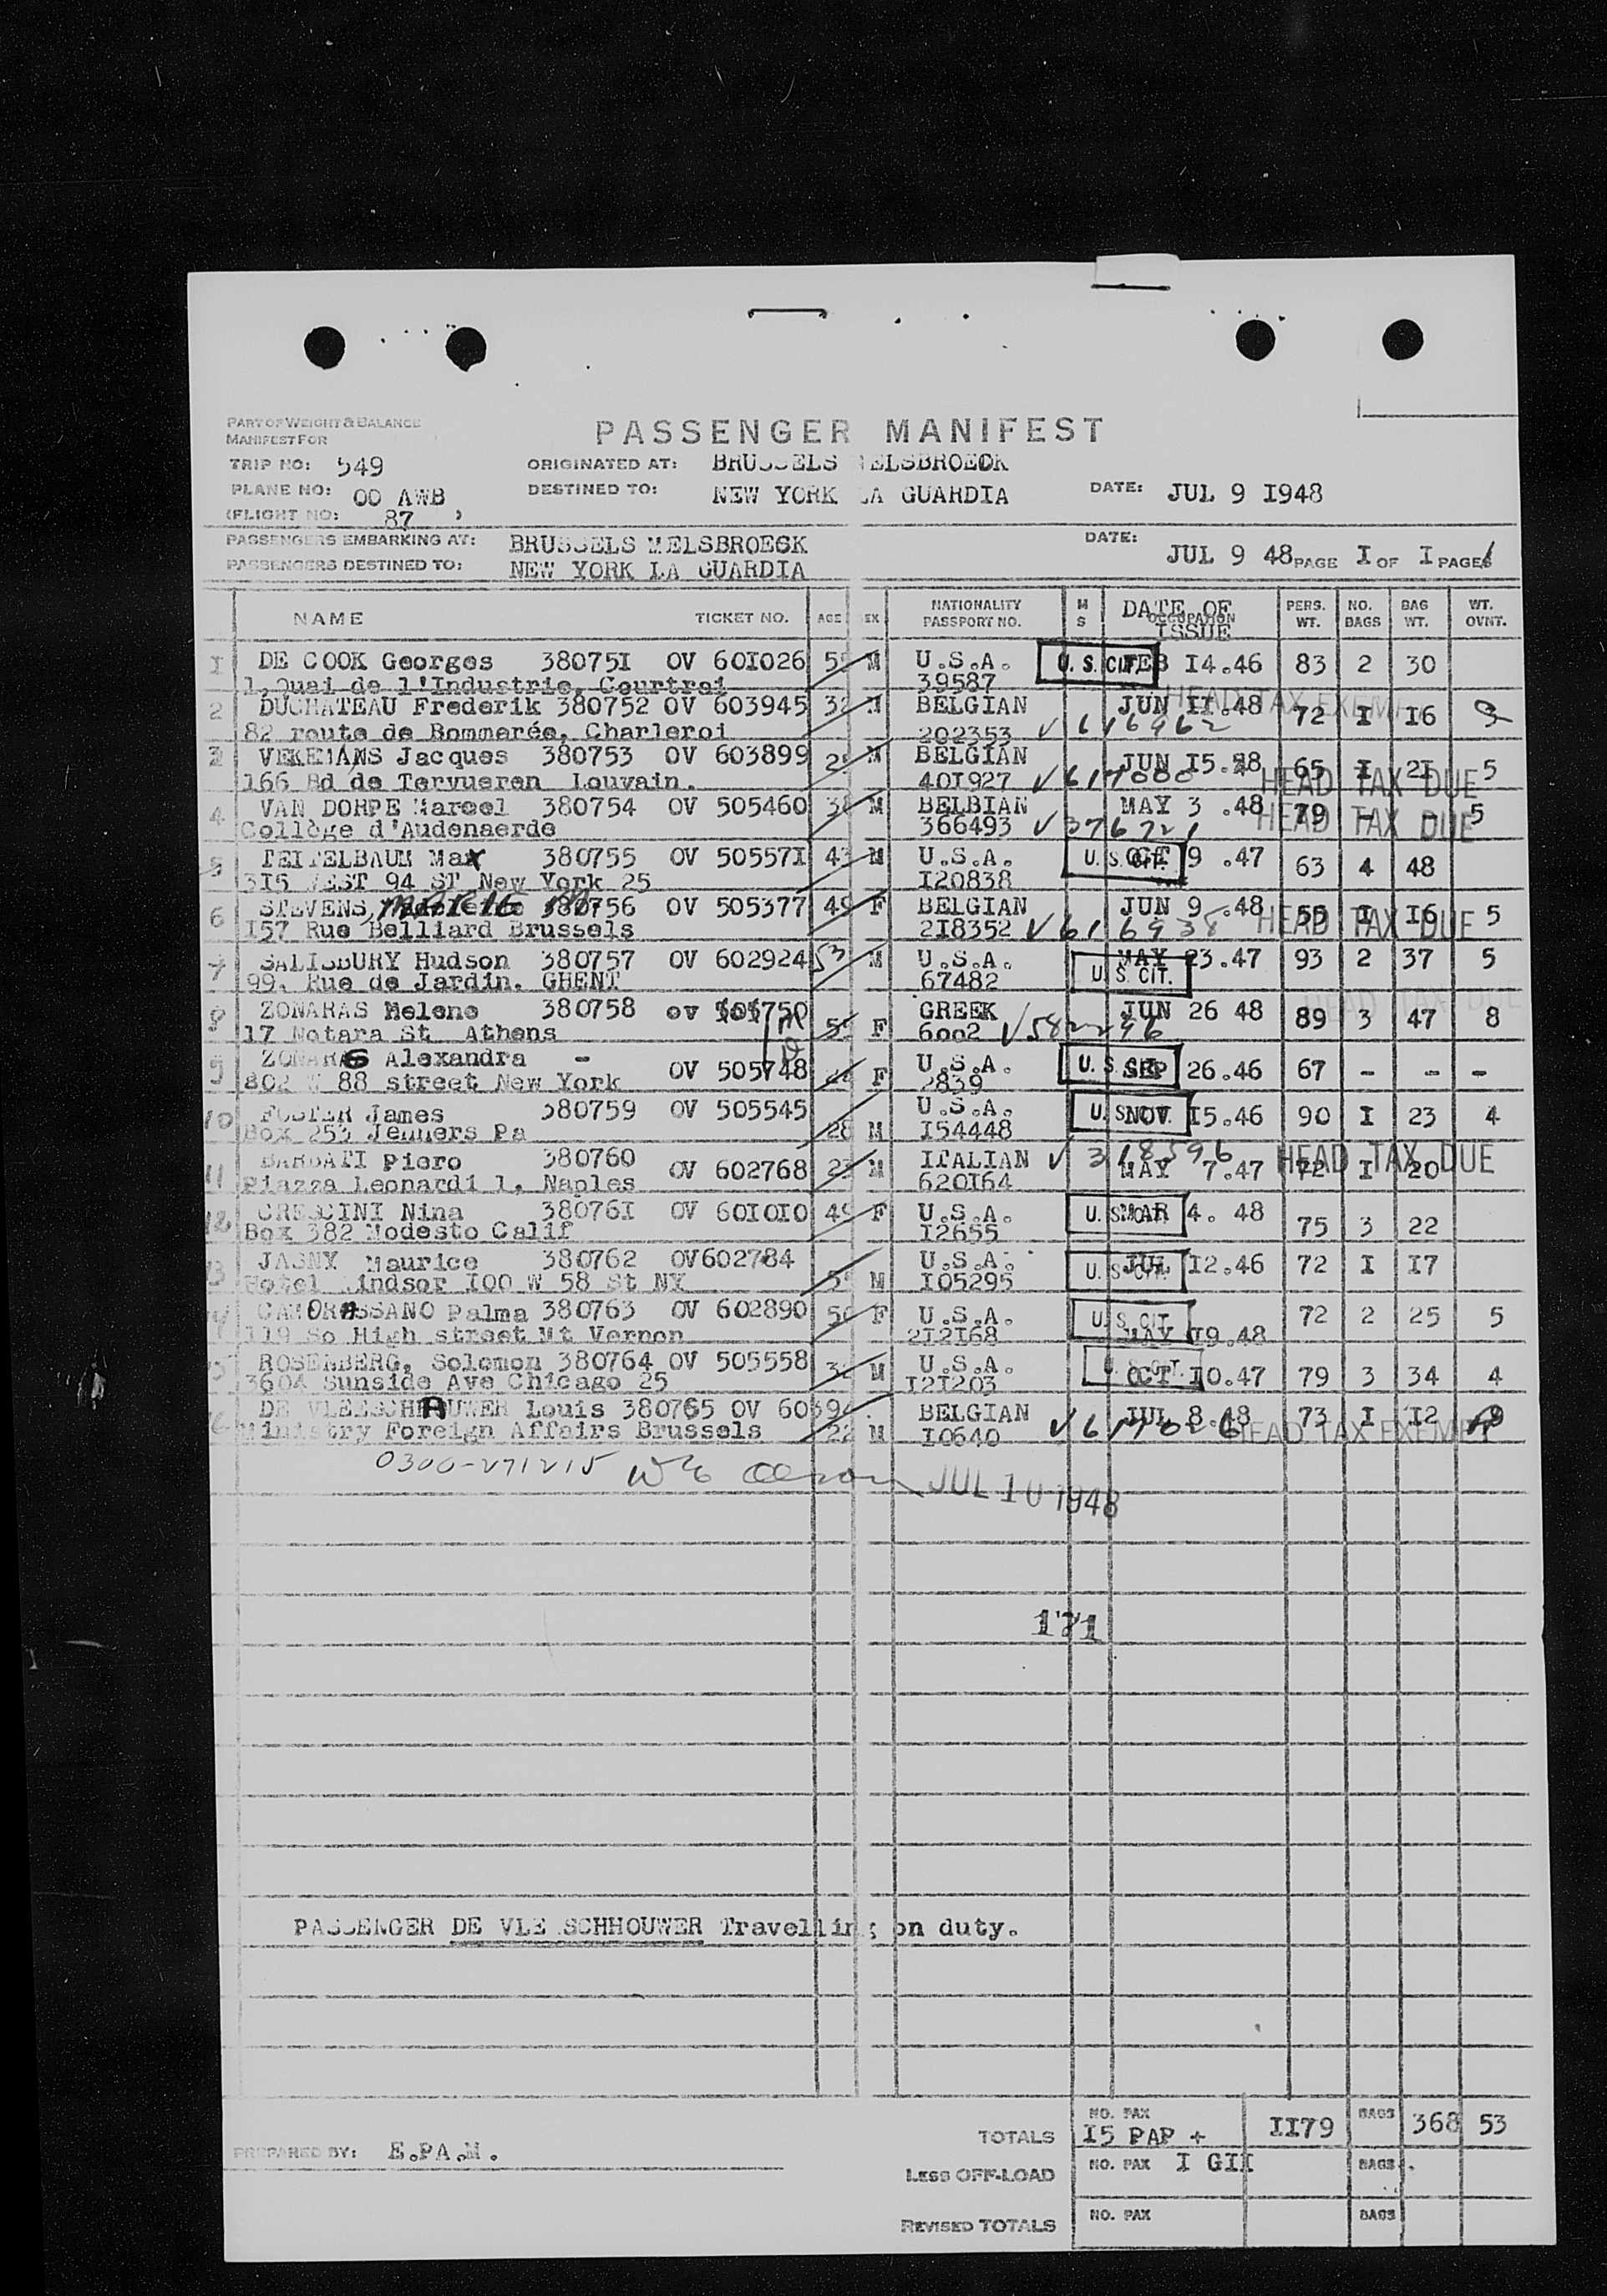 PART OF WEIGHT & BALANCE
MANIFEST FOR
PASSENGER MANIFEST
TRIP NO: 549
ORIGINATED AT: BRUSSELS MELSBROECK
PLANE NO: OO AWB
DESTINED TO: NEW YORK LA GUARDIA
DATE: JUL 9 I948
(FLIGHT NO: 87 )
PASSENGERS EMBARKING AT: BRUSSELS MELSBROECK
DATE: JUL 9 48 PAGE I OF I PAGES
PASSENGERS DESTINED TO: NEW YORK LA GUARDIA
NAME TICKET NO. AGE SEX NATIONALITY PASSPORT NO. M S OCCUPATION DATE OF ISSUE PERS. WT. NO. BAGS BAG WT. WT. OVNT.
1 DE COOK Georges 38075I OV 60I026 M U.S.A. U.S. CIT. FEB I4.46 83 2 30
1,Quai de l'Industrie, Courtrai 39587
2 DUCHATEAU Frederik 380752 OV 603945 M BELGIAN JUN II.48 HEAD TAX EXEMPT 72 I I6
82 route de Bommarée, Charleroi 202353 ✓ 616962
3 VEKEMANS Jacques 380753 OV 603899 M BELGIAN JUN I5. 65 I 2I 5
166 Bd de Tervueren Louvain. 40I927 ✓ 617000 HEAD TAX DUE
4 VAN DORPE Marcel 380754 OV 505460 M BELBIAN MAY 3 .48 79 - - 5
Collège d'Audenaerde 366493 ✓ 376721 HEAD TAX DUE
5 TEITELBAUM Max 380755 OV 50557I 43 M U.S.A. U.S. CIT. OCT 9 .47 63 4 48
3I5 WEST 94 ST New York 25 I20838
6 STEVENS, MARIE M. 380756 OV 505377 49 F BELGIAN JUN 9 .48 55 I I6 5
I57 Rue Belliard Brussels 2I8352 ✓ 616938 HEAD TAX DUE
7 SALISBURY Hudson 380757 OV 602924 53 M U.S.A. U.S. CIT. MAY 23.47 93 2 37 5
99, Rue de Jardin. GHENT 67482
8 ZONARAS Helene 380758 ov 505750 F GREEK JUN 26 48 HEAD TAX DUE 89 3 47 8
17 Notara St Athens 6002 ✓ 582296
9 ZONARAS Alexandra - OV 505748 F U.S.A. U.S. CIT. SEP 26.46 67 - - -
802 W 88 street New York 2839
10 FOSTER James 380759 OV 505545 28 M U.S.A. U.S. CIT. NOV. I5.46 90 I 23 4
Box 253 Jenners Pa I54448
11 BARBATI Piero 380760 OV 602768 M ITALIAN ✓ 318596 MAY 7.47 HEAD TAX DUE 72 I 20
Piazza Leonardi 1, Naples 620I64
12 CRESCINI Nina 38076I OV 60I0I0 49 F U.S.A. U.S. CIT. MAR 4. 48 75 3 22
Box 382 Modesto Calif I2655
13 JASNY Maurice 380762 OV602784 M U.S.A. U.S. CIT. JUL I2.46 72 I I7
Hotel Windsor I00 W 58 St NY I05295
14 CAMORASSANO Palma 380763 OV 602890 F U.S.A. U.S. CIT. MAY I9.48 72 2 25 5
119 So High street Mt Vernon 2I2I68
15 ROSENBERG, Solomon 380764 OV 505558 M U.S.A. U.S. CIT. OCT I0.47 79 3 34 4
3604 Sunside Ave Chicago 25 I2I203
16 DE VLEESCHHAUWER Louis 380765 OV 22 M BELGIAN JUL 8.48 73 I I2
Ministry Foreign Affairs Brussels I0640 ✓ 617026 HEAD TAX EXEMPT
0300-271215 JUL 10 1948
171
PASSENGER DE VLEESCHHOUWER Travelling on duty.
TOTALS NO. PAX I5 PAP + II79 BAGS 368 53
PREPARED BY: E.PA.M.
LESS OFF-LOAD NO. PAX I GII BAGS
REVISED TOTALS NO. PAX BAGS